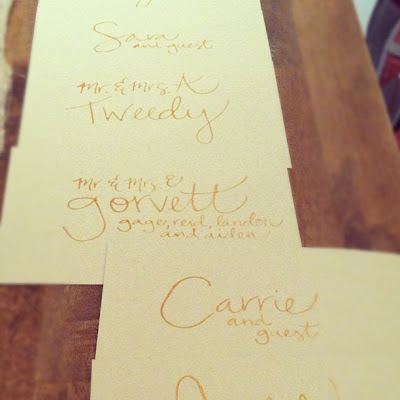 Sara
and guest
Mr. & Mrs. A
Tweedy
Mr. & Mrs. E
gorvett
gage, reid, landon
and aiden
Carrie
and
guest